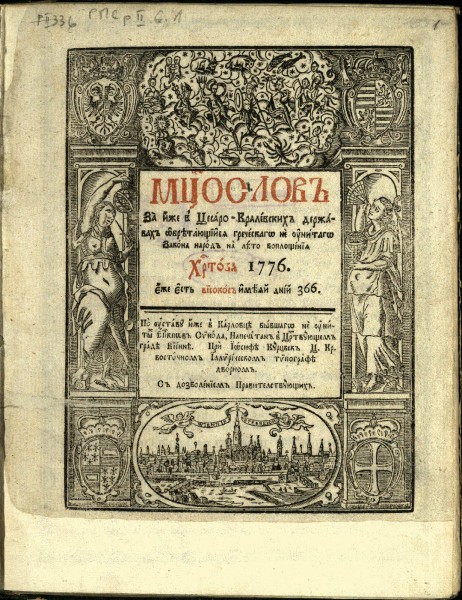 РПСр II 6.1
МЦ҃ОСЛОВЪ
За и҆̀же в̾ Цесаро-Кралевскихъ держа-
вахъ ѡ҆брѣтающїйсѧ греческагѡ не ᲂу҆нитагѡ
Закона народъ на лѣто воплощенїѧ
Хрⷭ҇това 1776.
є҆́же є҆́сть високосъ имѣѧй дній 366.
По ᲂу҆ставу и҆́же в̾ Карловцѣ бывшагѡ не ᲂу҆ни-
Сѵнода, Напечатан в̾ Цртвующем
градѣ Вїеннѣ. При Іѡсифѣ Курцбек,
восточном Їллѵрическом тѵпографѣ
дворном.
Съ дозволенїем Правителствующих.